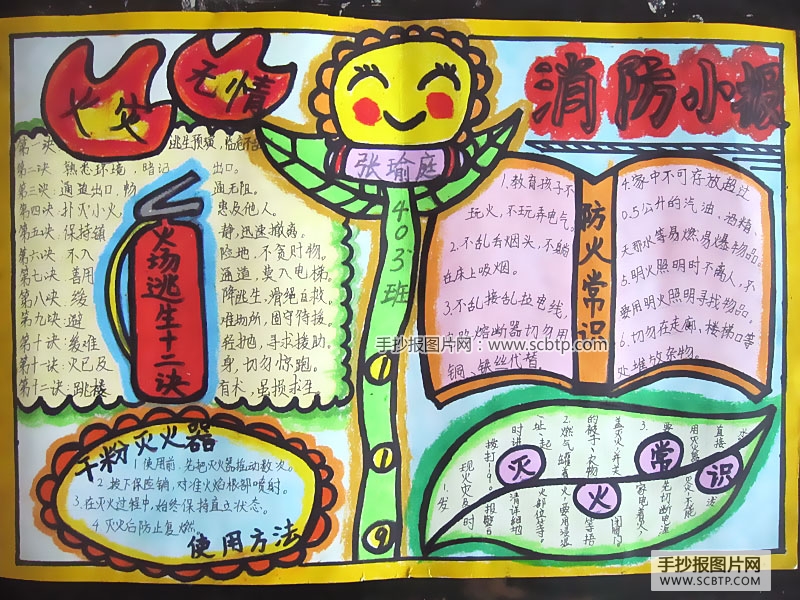 火灾
无情
消防小报
张瑜庭
403班
119
第一决: 逃生预演,临危不
第二决 熟悉环境,暗记 出口。
第三决:通道出口,畅 通无阻。
第四决:扑灭小火, 惠及他人。
第五决:保持镇 静,迅速撤离。
第六决:不入 险地,不贪财物。
第七决:善用 通道,莫入电梯
第八决:缓 降逃生,滑绳自救
第九决:避 难场所,固守待援。
第十决:缓难 轻抛,寻求援助。
第十一决:火已及 身,切勿惊跑。
第十二决:跳楼 有术,虽损求生
火场逃生十二决
干粉灭火器
1 使用前,先把灭火器摇动数次。
2.拔下保险销,对准火焰根部喷射。
3.在灭火过程中,始终保持直立状态。
4.灭火后防止复燃
使用方法
防火常识
1.教育孩子不
玩火,不玩弄电气。
2.不乱丢烟头,不躺
在床上吸烟。
3.不乱接乱拉电线,
电路熔断器切勿用
铜、铁丝代替。
4.家中不可存放超过
0.5公升的汽油、酒精、
天那水等易燃易爆物品。
5.明火照明时不离人,不
要用明火照明寻找物品,
6.切勿在走廊、楼梯口等
处堆放杂物。
灭火常识
1.发
现火灾及时
拨打119,报警台
时讲 请详细地
址、起火部位等。
2.燃气罐着火,要用浸湿
的被子、衣物等捂
盖灭火,并关
3.家电着火,
要先切断电源
手抄报图片网:www.scbtp.com
手抄报图片网
WWW.SCBTP.COM